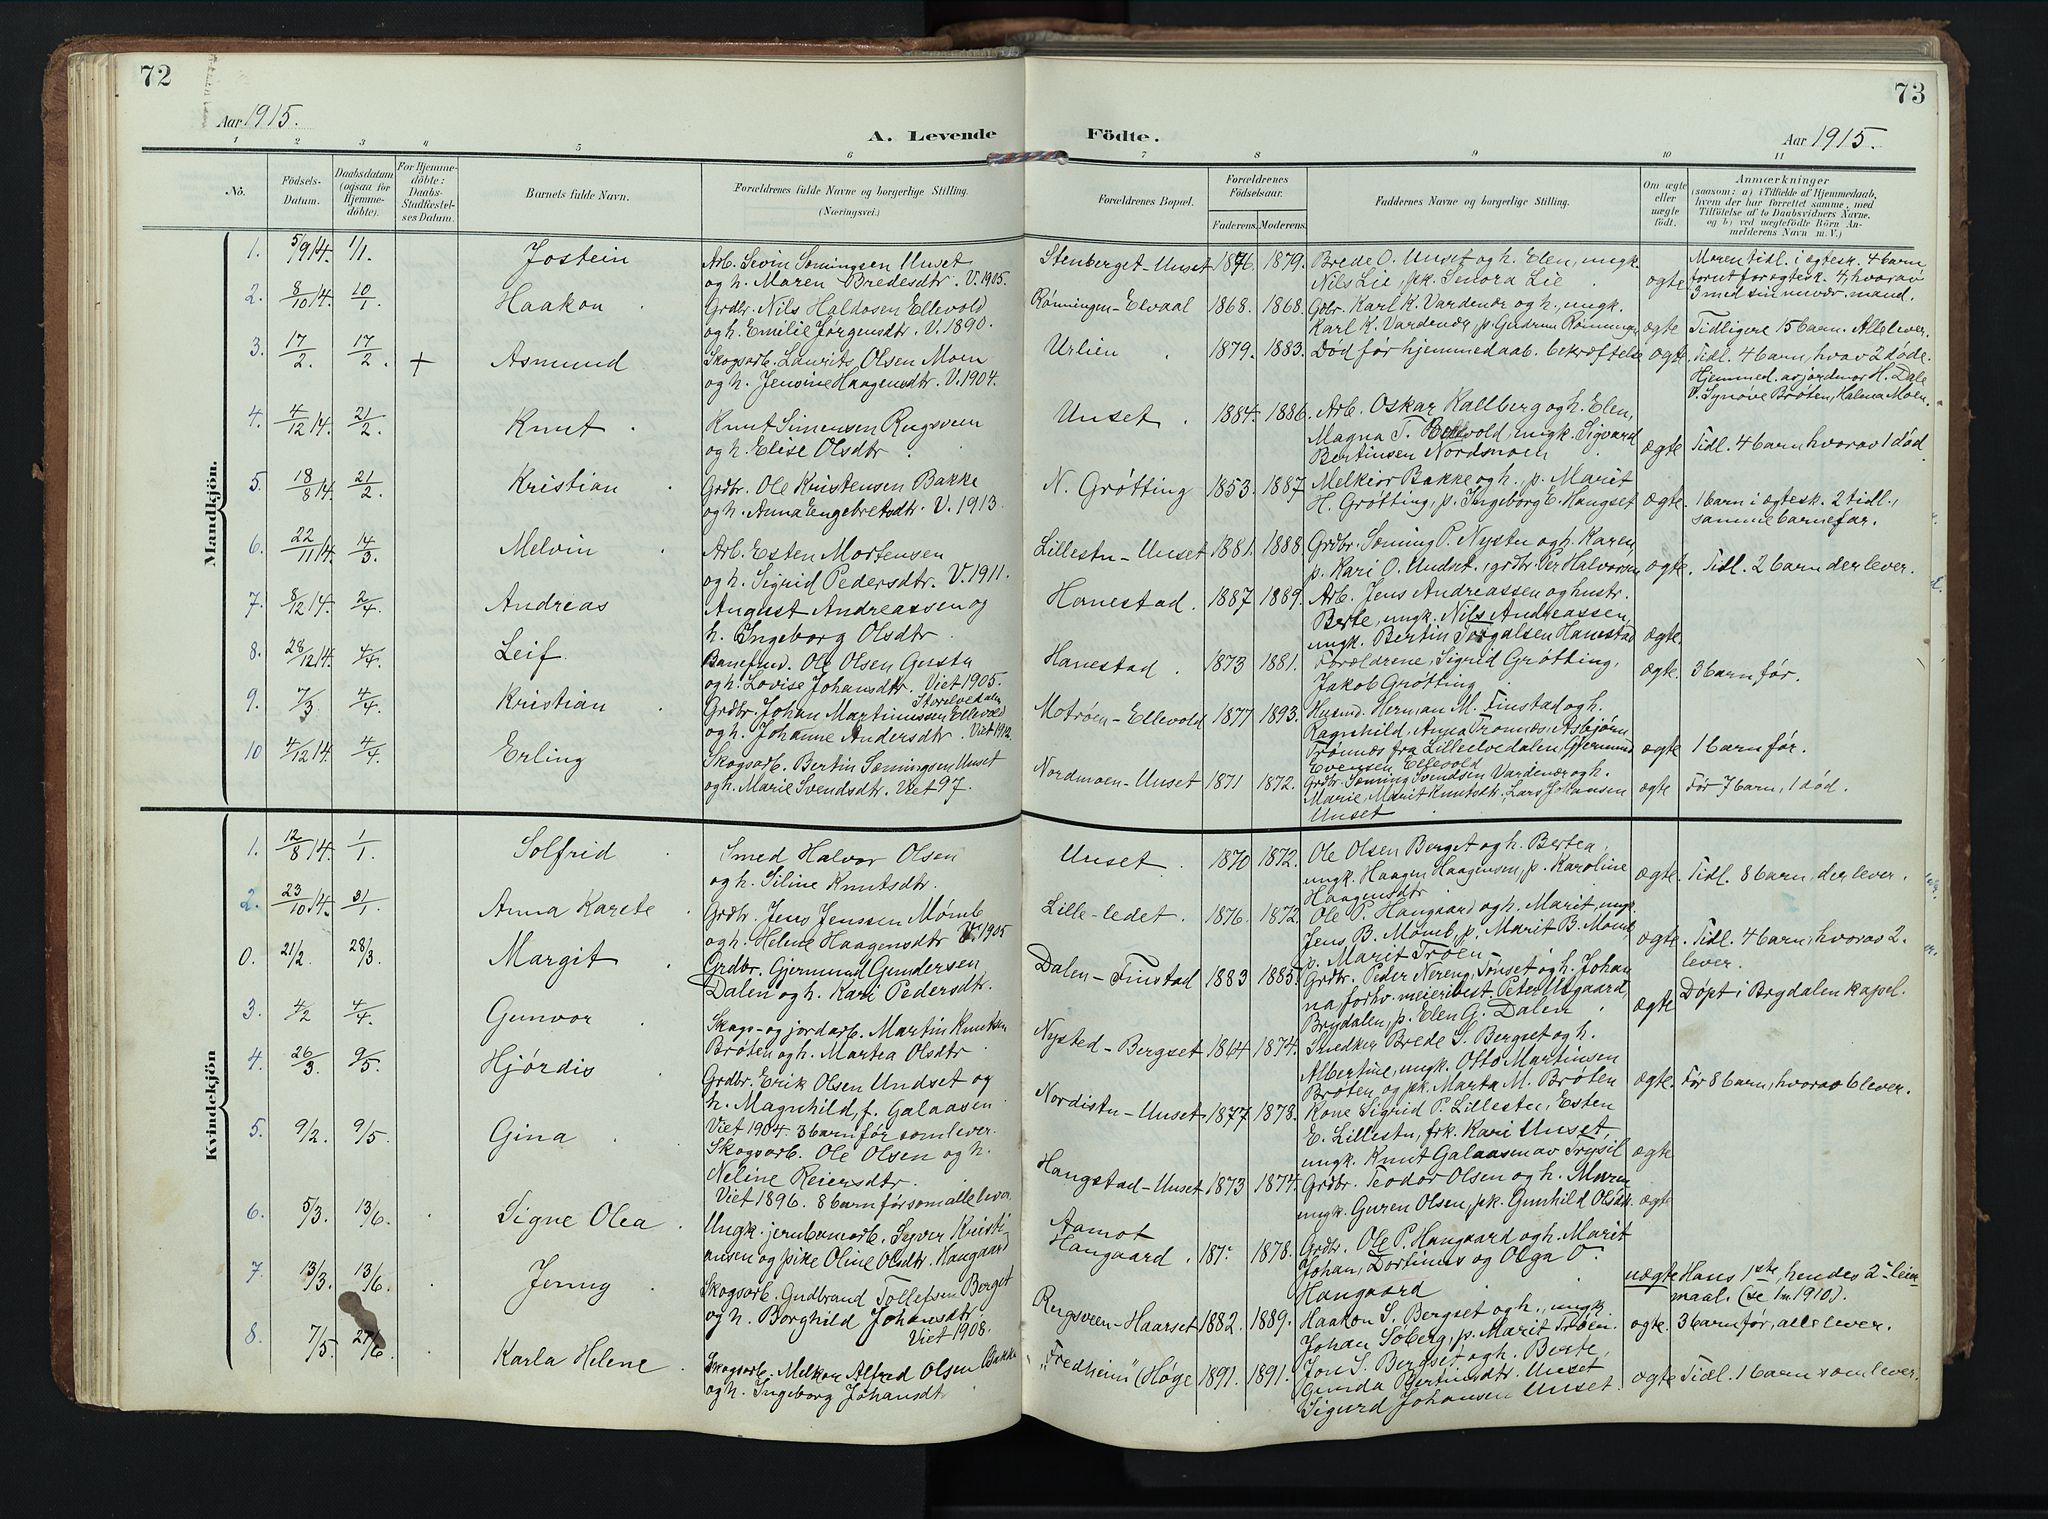 72
Aar 1915.
A. Levende
Födte.
Aar 1915.
73
1 2 3 4 5 6 7 8 9 10 11
Nö.
Födsels-
Datum.
Daabsdatum
(ogsaa for
Hjemme-
döbte).
For Hjemme-
döbte:
Daabs-
Stadfæstel-
ses Datum.
Barnets fulde Navn.
Forældrenes fulde Navne og borgerlige Stilling.
(Næringsvei.)
Forældrenes Bopæl.
Forældrenes
Födselsaar.
Faderens. Moderens.
Faddernes Navne og borgerlige Stilling.
Om ægte
eller
uægte
födt.
Anmærkninger
(saasom: a) i Tilfælde af Hjemmedaab,
hvem der har forrettet samme, med
Tilföielse af to Daabsvidners Navne,
og b) ved uægtefödte Börn An-
melderens Navn m. V.)
Mandkjön.
1. 5/9 14. 1/1. Jostein
Arb. Sevin Sæmingsen Unset
og h. Maren Bredesdtr. V. 1905.
Stenberget-Unset 1876. 1879.
Brede O. Unset og h. Elen, ungk.
Nils Lie, pk. Smora Lie
ægte
Moren tidl. i ægtesk. 4 barn
forut for ægtesk. 4, hvorav
3 med sin nuvær. mand.
2. 8/10 14. 10/1 Haakon
Grdbr. Nils Haldosen Ellevold
og h. Emilie Jørgensdtr. V. 1890.
Rønningen-Elvaal 1868. 1868.
Gbr. Karl K. Vardenær og h., ungk.
Karl K. Vardenær, p. Gudrun Rønningen
ægte
Tidligere 15 barn. Alle lever.
3. 17/2. 17/2. + Asmund
Skogsarb. Laurits Olsen Moen
og h. Jensine Haagensdtr. V. 1904.
Urlien 1879. 1883.
Død før hjemmedaab. bekræftelse
ægte
Tidl. 4 barn, hvorav 2 døde.
Hjemmed. av jordmor H. Dale
V. Synøve Brøten, Kalena Moen.
4. 4/12 14. 21/2. Knut
Knut Simensen Rugsveen
og h. Elise Olsdtr
Unset 1884. 1886.
Arb. Oskar Kallberg og h. Elen,
Magna T. Bellvold, ungk. Sigvard
Bertinsen Nordsmoen
ægte
Tidl. 4 barn hvorav 1 død
5. 18/8 14. 21/2. Kristian
Grdbr. Ole Kristensen Bakke
og h. Anna Engebretsdtr. V. 1913.
N. Grøtting 1853. 1887
Melkior Bakke og h., p. Marit
H. Grøtting, p. Ingeborg E. Haugset
ægte
1 barn i ægtesk. 2 tidl.,
samme barnefar.
6. 22/11 14. 14/3. Melvin
Arb. Esten Mortensen
og h. Sigrid Pedersdtr. V. 1911.
Lillestu-Unset 1881. 1888
Grdbr. Sæming P. Nystu og h. Karen,
p. Kari O. Undset, grdbr. Per Halvorsen
ægte.
Tidl. 2 barn der lever.
7. 8/12 14. 2/4. Andreas
August Andreassen og
h. Ingeborg Olsdtr
Hanestad. 1887 1889.
Arb. Jens Andreassen og hustr.
Berte, ungk. Nils Andreassen,
ungk. Bertin Torgalsen Hanestad
ægte.
8. 28/12 14. 4/4. Leif
Banefmd. Ole Olsen Gustu
og h. Lovise Johansdtr. Viet 1905.
Hanestad. 1873 1881.
Forældrene, Sigrid Grøtting,
Jakob Grøtting
ægte.
3 barn før.
9. 7/3 4/4. Kristian
Storelvedalen
Grdbr. Johan Martinussen Ellevold
og h. Johanne Andersdtr. Viet 1912.
Motrøen-Ellevold 1877 1893.
Kusmd. Herman M. Finstad og h.
Ragnhild, Anna Tronnæs, Asbjørn
Trønnæs fra Lilleelvedalen, Gjermund
Evensen Ellevold
ægte
1 barn før.
10 4/12 14. 4/4. Erling
Skogsarb. Bertin Sæmingsen Unset
og h. Marie Svendsdtr. Viet 97.
Nordmoen-Unset 1871 1872.
Grdbr. Sæming Svendsen Vardenær og h.
Marie, Marit Knutsdtr., Lars Johansen
Unset.
ægte
Før 7 barn, 1 død.
Kvindekjön
1. 12/8 14. 1/1. Solfrid
Smed Halvor Olsen
og h. Siline Knutsdtr.
Unset 1870 1872.
Ole Olsen Berget og h. Bertea,
ungk. Haagen Haagensen, p. Karoline
Haagensdtr
ægte.
Tidl. 8 barn, der lever.
2. 23/10 14. 31/1. Anna Karete
Grdbr. Jens Jenssen Mømb
og h. Helene Haagensdtr V. 1905
Lille-ledet. 1876. 1872.
Ole P. Haugaard og h. Marit, ungk.
Jens B. Mømb, p. Marit B. Mømb,
p. Marit Trøen
ægte.
Tidl. 4 barn, hvorav 2.
lever.
0. 21/2 28/3. Margit
Grdbr. Gjermund Gundersen
Dalen og h. Kari Pedersdtr.
Dalen-Finstad 1883 1885.
Grdbr. Peder Nereng, Tønset og h. Johan
na, forhv. meieribest. Peter Usgaard,
Brydalen, p. Elen G. Dalen
ægte
Døpt i Brydalen kapel.
3. 4/2 4/4. Gunvor
Skogs- og jordarb. Martin Knutsen
Brøten og h. Martea Olsdtr
Nysted-Bergset 1864 1874.
Snedker Brede S. Bergset og h.
Albertine, ungk. Otto Martinsen
Brøten, og pk. Marta M. Brøten
ægte.
Før 8 barn, hvorav 6 lever.
4. 26/3. 9/5. Hjørdis
Grdbr. Erik Olsen Undset og
h. Magnhild, f. Galaasen
Viet 1904. 3 barn før som lever.
Nordistu-Unset 1877 1878.
Kone Sigrid P. Lillestu, Esten
E. Lillestu, frk. Kari Unset,
ungk. Knut Galaasen av Trysil
ægte
5. 9/2. 9/5. Gina
Skogsarb. Ole Olsen og h.
Neline Reiersdtr.
Viet 1896. 8 barn før som alle lever
Haugstad-Unset 1873 1874.
Grdbr. Teodor Olsen og h. Maren
ungk. Guren Olsen, pk. Gunhild Olsdtr
ægte
6. 5/3. 13/6. Signe Olea
Ungk. jernbanearb. Syver Kristi-
ansen og pike Oline Olsdtr. Haugaard
Aamot
Haugaard 1878.
Grdbr. Ole P. Haugaard og h. Marit
Johan, Dortinus og Olga O.
Haugaard
uægte
Hans 1ste, hendes 2. leier
maal. (se 1 1910).
7. 13/3. 13/6. Jenny
Skogsarb. Gudbrand Tollefsen Berget
og h. Borghild Johansdtr
Viet 1908.
Rugsveen-Haarset 1882. 1889.
Haakon S. Bergset og h., ungk.
Johan Søberg, p. Marit Trøen.
ægte.
3 barn før, alle lever.
8. 7/5. 27/6. Karla Helene
Skogsarb. Melkor Alfred Olsen Bakke
og h. Ingeborg Johansdtr
"Fredheim" (Høge 1891. 1891.
Jon S. Bergset og h. Berte,
Gunda Bertinsdtr. Unset
Sigurd Johansen Unset
ægte
Tidl. 1 barn som lever.